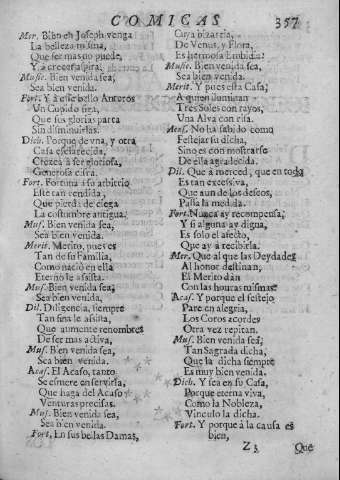 COMICAS 357
Mer. Bien en Joseph venga
La belleza misma,
Que ser mas no puede,
Y à crecer aspira.
Music. Bien venida sea,
Sea bien venida.
Fort. Y à este bello Anteros
Un Cupido siga,
Que sus glorias parta
Sin disminuirlas.
Dich. Porque de vna, y otra
Casa esclarecida,
Crezca à ser gloriosa,
Generosa cifra.
Fort. Fortuna à su arbitrio
Este tan rendida,
Que pierda de ciega
La costumbre antigua.
Mus. Bien venida sea,
Sea bien venida.
Merit. Merito, pues es
Tan de su Familia,
Como naciò en ella
Eterno le assista.
Mus. Bien venida sea,
Sea bien venida,
Dil. Diligencia, siempre
Tan fina le assista,
Que aumente renombres
De ser mas activa,
Mus. Bien venida sea,
Sea bien venida.
Acas. El Acaso, tanto
Se esmere en servirla,
Que haga del Acaso
Venturas precisas.
Mus. Bien venida sea,
Sea bien venida.
Fort. En sus bellas Damas,
Cuya bizarria,
De Venus, y Flora,
Es hermosa Embidia:
Music. Bien venida sea,
Sea bien venida.
Merit. Y pues esta Casa,
A quien iluminan
Tres Soles con rayos,
Una Alva con risa.
Acas. No ha sabido como
Festejar su dicha,
Sino es con mostrarse
De ella agradecida.
Dil. Que à merced, que en todo
Es tan excessiva,
Que aun de los deseos,
Passa la medida.
Fort. Nunca ay recompensa,
Y si alguna ay digna,
Es solo el afecto,
Que ay à recibirla.
Mer. Que al que las Deydades
Al honor destinan,
El Merito dàn
Con las honras mismas.
Acas. Y porque el festejo
Pare en alegria,
Los Coros acordes
Otra vez repitan.
Mus. Bien venida sea,
Tan Sagrada dicha,
Que la dicha siempre
Es muy bien venida.
Dich. Y sea en su Casa,
Porque eterna viva,
Como la Nobleza,
Vinculo la dicha.
Fort. Y porque à la causa es
bien,
Z3 Que